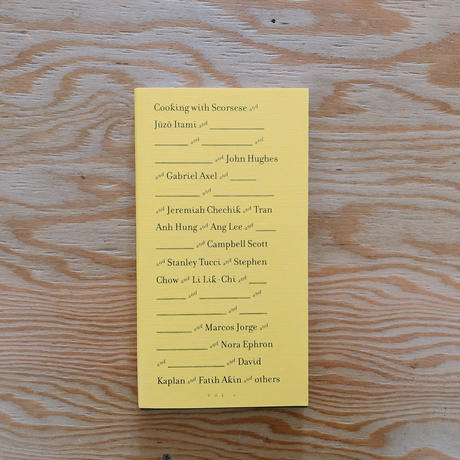 Cooking with Scorsese and
Jūzō Itami and ____________
_______ and ___________ and
_____________ and John Hughes
and Gabriel Axel and ______
__________ and _____________
and Jeremiah Chechik and Tran
Anh Hung and Ang Lee and ____
________ and Campbell Scott
and Stanley Tucci and Stephen
Chow and Li Lik-Chi and ____
______ and ___________ and
_______________ and ______
________ and Marcos Jorge and
___________ and Nora Ephron
and ____________ and David
Kaplan and Fatih Akin and others
VOL